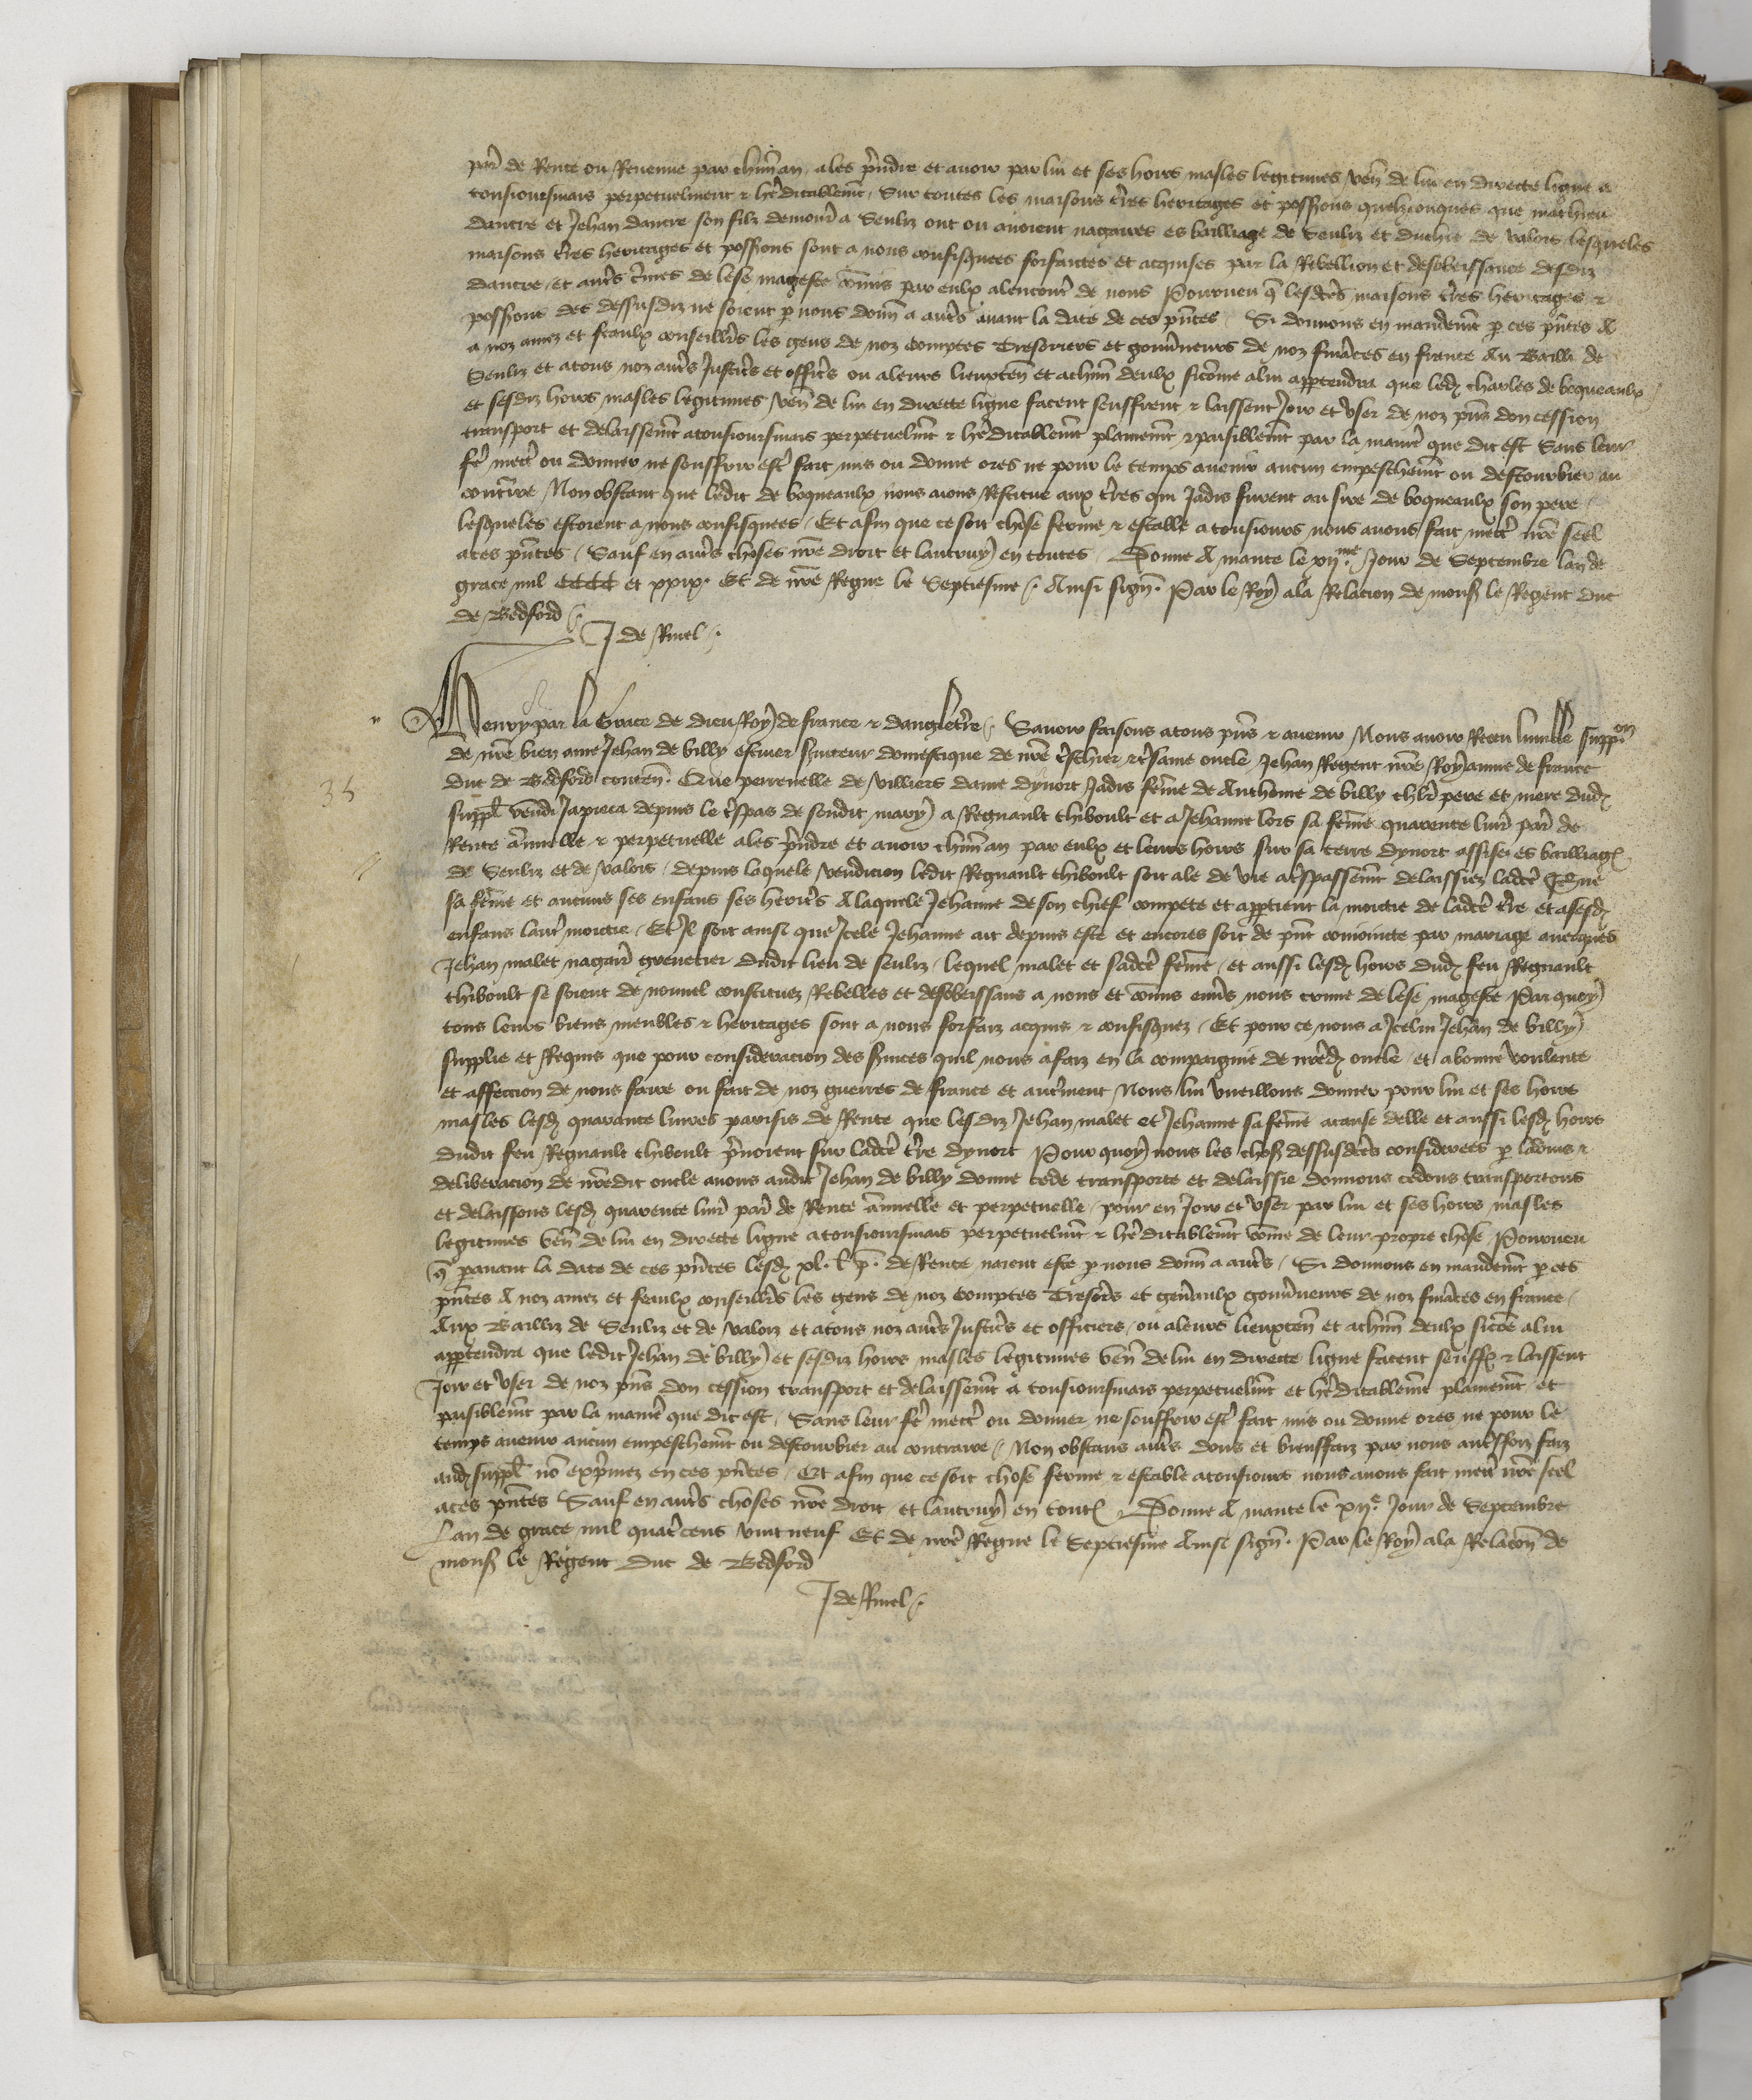 par̃ de Rente ou Revenue par chũn an ales p̃ndre et avoir par lui et ses hoirs masles legitimes veñ de lui en directe ligne a
tousioursmais perpetuelment & hẽditablemt̃ Sur toutes les maisons t̃res heritages et possions quelzconques que mathieu
dantre et Jehan dantre son filz demour̃ a Senliz ont ou avoient nagaires es bailliage de Senliz et duchie de valois lesqueles
maisons t̃res heritages et possions sont a nous confisquees forfaictes et acquises par la Rebellion et desobeissance desdiz
dantre et aut̃s c̃mes de lese mageste cõmis par eulx alencont̃ de nous Pourveu q̃ lesdct̃es maisons t̃res heritages &
possions des dessusdiz ne soient p nous donñ a aut̃s avant la date de ces pñtes Si donnons en mandemt̃ p ces pñtes A
a noz amez et feaulx conseillr̃s les gens de noz comptes Tresoriers et gouv̾neurs de noz finãces en france Au Bailli de
Senliz et atous noz aut̃s Justic̃s et offic̃s ou aleurs lieuxteñ et achũn deulx sicõme alui apptendra que ledꝫ charles de boqueaulx
et sesdiz hoirs masles legitimes veñ de lui en directe ligne facent seuffrent & laissent Joir et user de noz pñs don cession
transport et delaissemt̃ atousioursmais perpetuelmt̃ & hẽditablemt̃ plainemt̃ & paisiblemt̃ par la manier̃ que dit est Sans leur
fẽ mect̃ ou donner ne souffrir est̃ fait mis ou donne ores ne pour le temps avenir aucun empeschemt̃ ou destourbier au
contr̃ire Non obstant que ledit de boqueaulx nous aions Restitue aux t̃res qui Jadis furent au sire de boqueaulx son pere
lesqueles estoient a nous confisquees Et afin que ce soit chose ferme & estable a tousiours nous avons fait mect̃ nr̃e seel
aces pñtes Sauf en aut̃s choses nr̃e droit et lautruy en toutes Donne A mante le xijme Jour de Septembre lan de
grace mil cccc et xxix. Et de nr̃e Regne le Septiesme Ainsi signe. Par le Roy ala Relacion de mons̃ le Regent duc
de Bedford
J de Rinel
Henry par la Grace de dieu Roy de france & dangletr̃re Savoir faisons atous pñs & avenir Nous avoir Receu humble suppon
de nr̃e bien ame Jehan de billy escuier s̾viteur domestique de nr̃e t̃schier & t̃same oncle Jehan Regent nr̃e Royaume de france
duc de Bedford conteñ. Que perrenelle de villiers dame dynort Jadis fẽme de Anthoine de billy chlr̃ pere et mere dudꝫ
supplt̃ vendi Japieca depuis le t̃spas de sondit mary a Regnault thiboult et a Jehanne lors sa fẽme quarente livr̃ par̃ de
Rente ãnuelle & perpetuelle ales p̃ndre et avoir chũn an par eulx et leurs hoirs sur sa terre dynort assise es bailliagꝭ
de Senliz et de valois depuis laquele vendicion ledit Regnault thiboult soit ale de vie at̃spassemt̃ delaissiez ladct̃e
sa fẽme et aucuns ses enfans ses herit̃s A laquele Jehanne de son chief compete et apptient la moictie de ladct̃e t̃re et asesdꝫ
enfans laut̃ moictie Et Il soit ainsi que Icele Jehanne ait depuis este et encores soit de pñt conjoincte par mariage avecques
Jehan malet nagair̃ grenetier dudit lieu de senliz lequel malet et sadct̃e fẽme et aussi lesdꝫ hoirs dudꝫ feu Regnault
thiboult se soient de nouvel constituez Rebelles et desobeissans a nous et cõmis env̾s nous crime de lese mageste Par quoy
tous leurs biens meubles & heritages sont a nous forfaiz acquis & confisquez Et pour ce nous a Icelui Jehan de billy
supplie et Requis que pour consideracion des s̾vices quil nous afaiz en la compaignie de nr̃edꝫ oncle et abonne voulente
et affeccion de nous faire ou fait de noz guerres de france et autr̃ment Nous lui vueillons donner pour lui et ses hoirs
masles lesdꝫ quarante livres parisis de Rente que lesdiz Jehan malet et Jehanne sa fẽme acause delle et aussi lesdꝫ hoirs
dudit feu Regnault thiboult p̃noient sur ladct̃e t̃re dynort Pour quoy nous les chos̃ dessusdct̃es considerees p ladvis &
deliberacion de nr̃edit oncle avons audit Jehan de billy donne cede transporte et delaissie donnons cedons transportons
et delaissons lesdꝫ quarente livr̃ par̃ de Rente ãnuelle et perpetuelle pour en Joir et user par lui et ses hoirs masles
legitimes veñ de lui en directe ligne atousioursmais perpetuelmt̃ & hẽditablemt̃ cõme de leur propre chose Pourveu
q̃ pavant la date de ces pñtes lesdꝫ xl. l. p̃. de Rente naient este p nous donñ a aut̃s Si donnons en mandemt̃ p ces
pñtes A noz amez et feaulx conseillr̃s les gens de noz comptes Tresor̃s et geñaulx gouv̾neurs de noz finãces en france
Aux Bailliz de Senliz et de valoiz et atous noz aut̃s Justic̃s et officiers ou aleurs lieuxteñ et achũn deulx sicõe alui
apptendra que ledit Jehan de billy et sesdiz hoirs masles legitimes veñ de lui en directe ligne facent seuffrꝭ & laissent
Joir et user de noz pñs don cession transport et delaissemt̃ a tousioursmais perpetuelmt̃ et hẽditablemt̃ plainemt̃ et
paisiblemt̃ par la manier̃ que dit est Sans leur fẽ mect̃ ou donner ne souffrir est̃ fait mis ou donne ores ne pour le
temps avenir aucun empeschemt̃ ou destourbier au contraire Non obstans aut̃s dons et biensfaiz par nous aut̃sfoiz faiz
audꝫ supplt̃ nõ exp̃mez en ces pñtes Et afin que ce soit chose ferme & estable atousiours nous avons fait mect̃ nr̃e seel
aces pñtes Sauf en aut̃s choses nr̃e droit et lautruy en toutꝭ Donne A mante le xije Jour de Septembre
Lan de grace mil quat̃cens vint neuf Et de nr̃e Regne le Septiesme Ainsi signe. Par le Roy ala Relacon̄ de
mons̃ le Regent duc de Bedford
J de Rinel
35